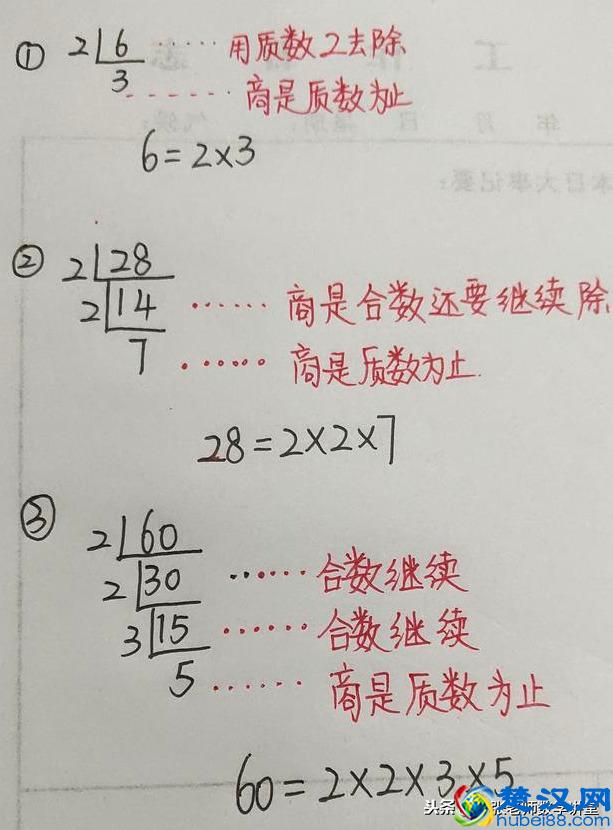 ① 2 6 ······ 用质数2去除
3 ······ 商是质数为止
6=2×3
② 2 28
2 14 ······ 商是合数还要继续除
7 ······ 商是质数为止.
28=2×2×7
③ 2 60
2 30 ······ 合数继续
3 15 ······ 合数继续
5 ······ 商是质数为止
60=2×2×3×5
楚汉网
hubei88.com